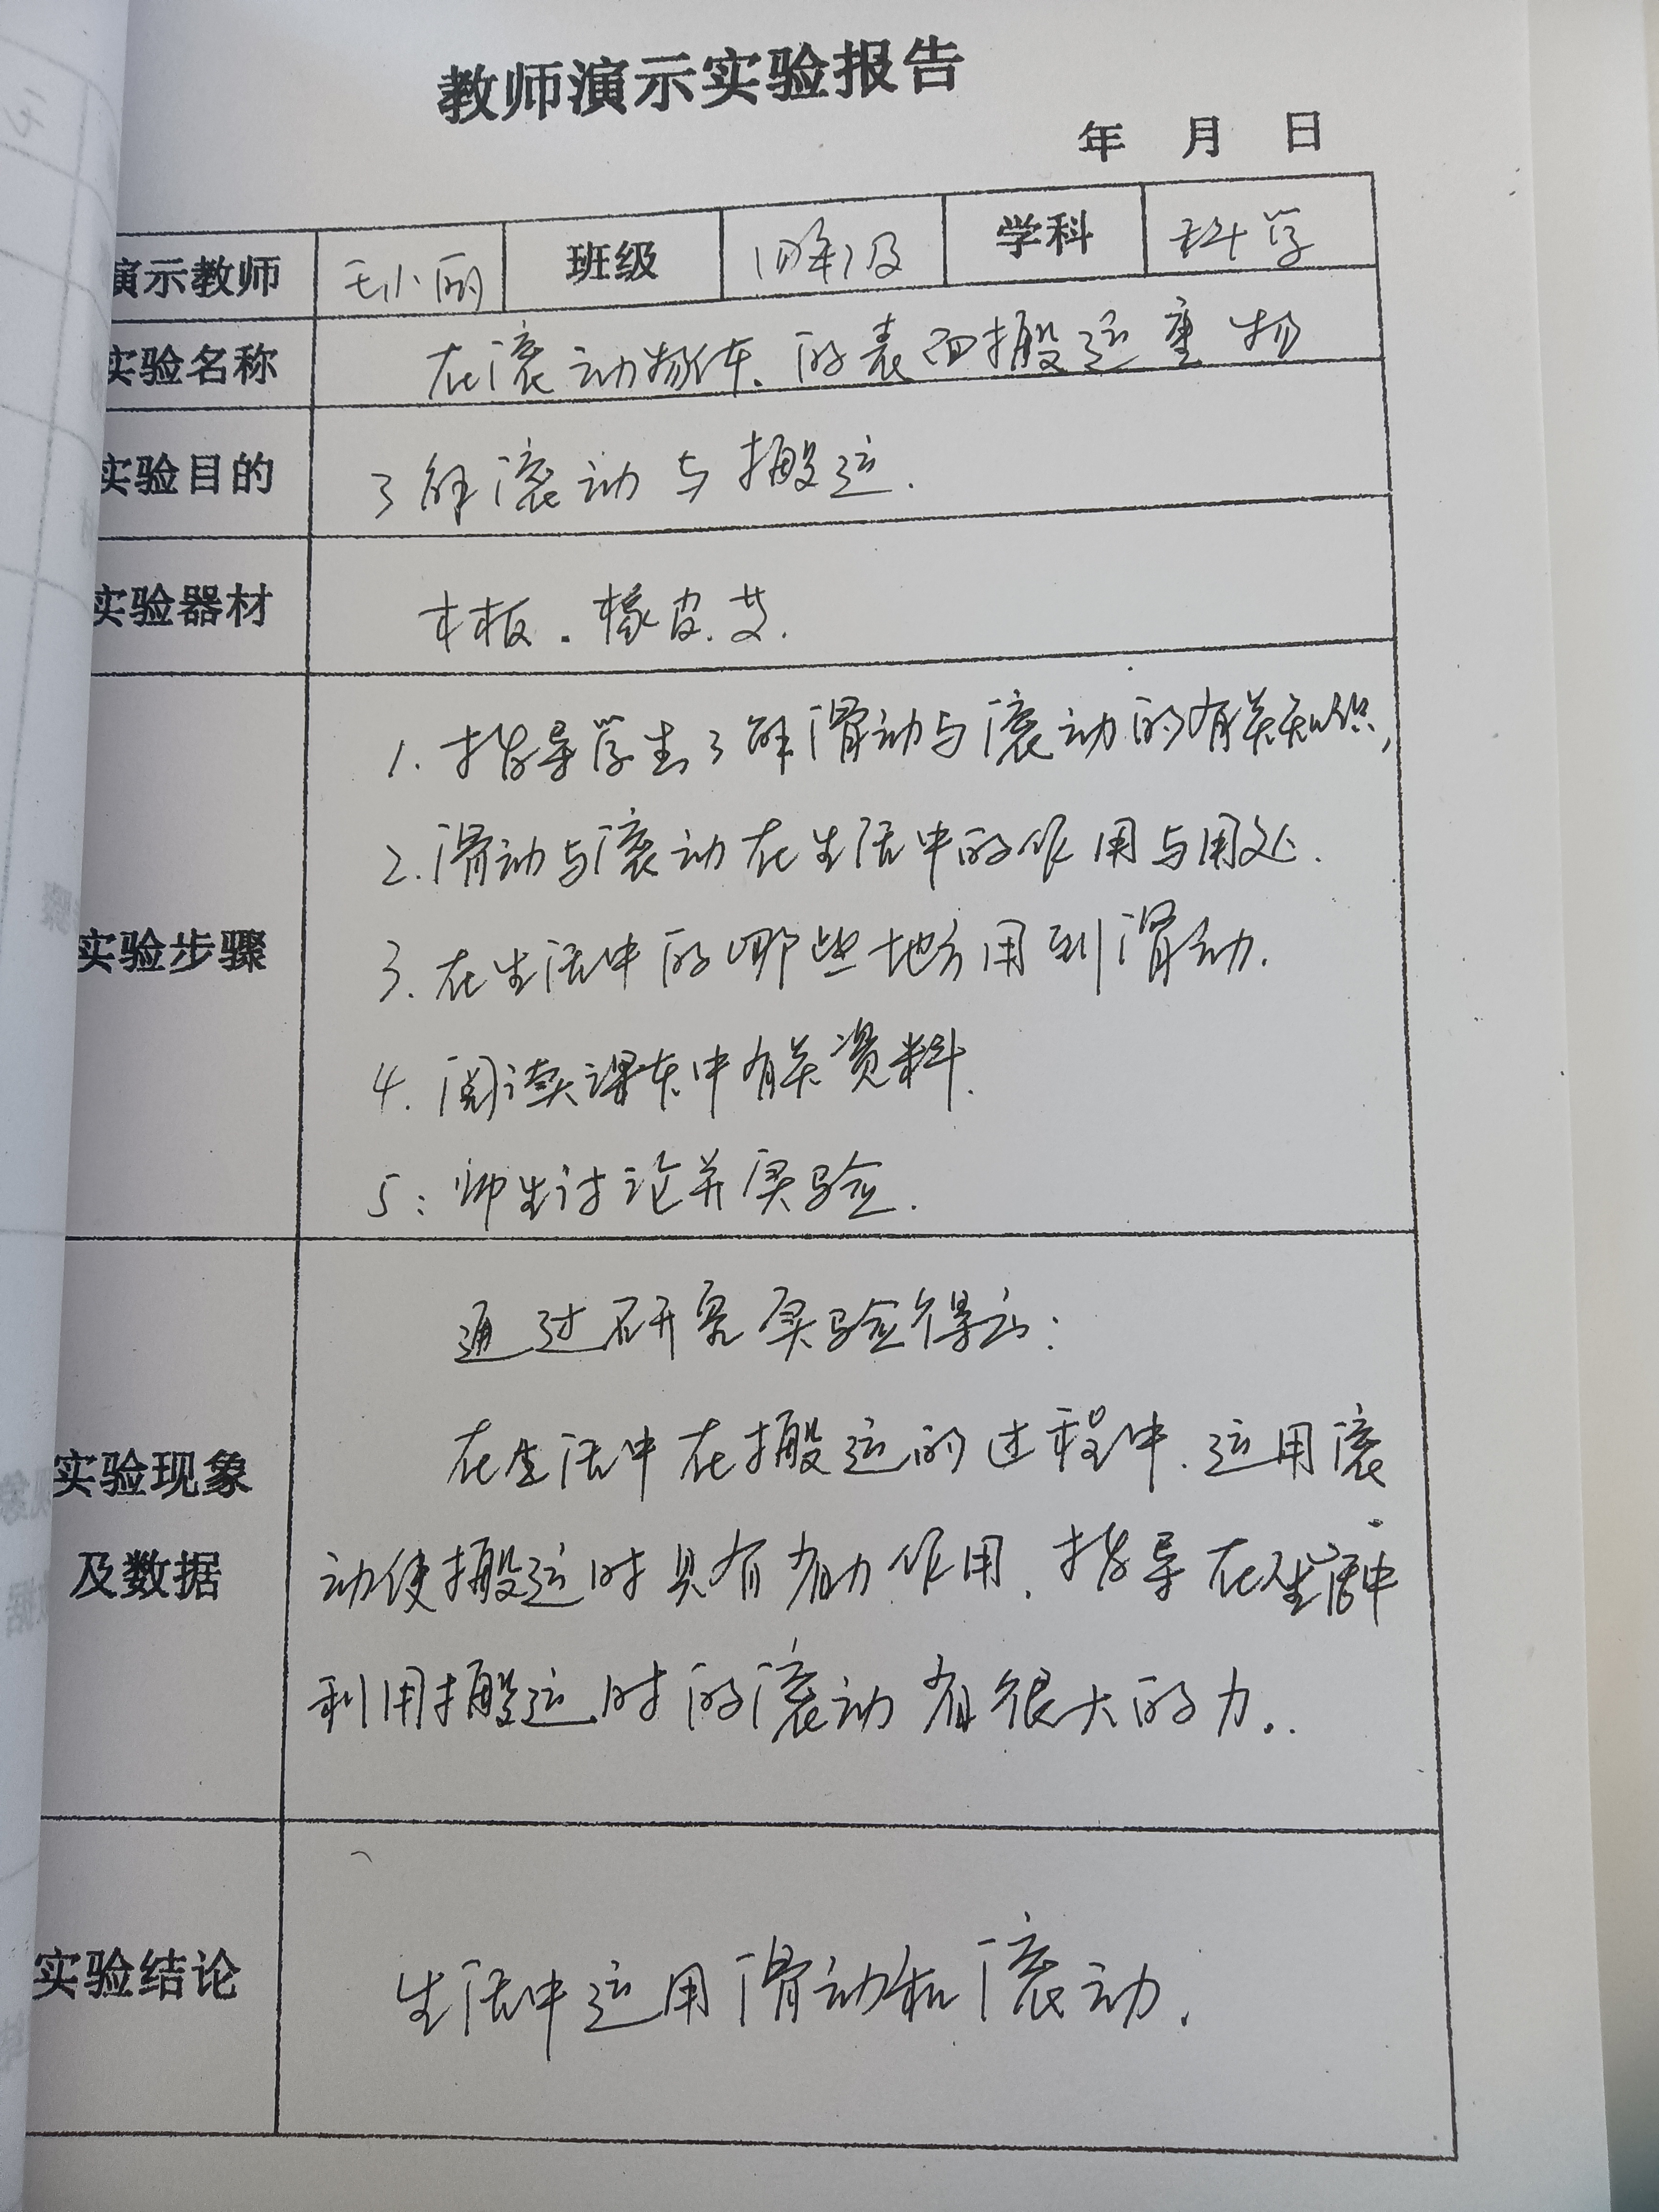 教师演示实验报告
年 月 日
演示教师 毛小丽 班级 四年级 学科 科学
实验名称 在滚动物体的表面搬运重物
实验目的 了解滚动与搬运.
实验器材 木板.橡皮.
1.指导学生了解滑动与滚动的有关知识,
2.滑动与滚动在生活中的作用与用处.
实验步骤 3.在生活中的哪些地方用到滑动.
4.阅读课本中有关资料.
5:师生讨论并实验.
通过研究实验得出:
实验现象 在生活中在搬运的过程中.运用滚
及数据 动使搬运时具有省力作用.指导在生活中
利用搬运时的滚动省很大的力..
实验结论 生活中运用滑动和滚动.